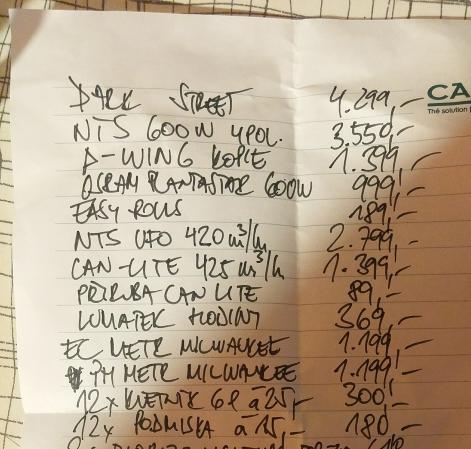 DARK STREET 4.299,-
CA
Thé solution
NTS 600W 4POL. 3.550,-
A-WING KOPIE 1.399,-
OSRAM PLANTASTAR 600W 999,-
EASY ROLLS 189,-
NTS UFO 420 m³/h 2.799,-
CAN-LITE 425 m³/h 1.399,-
PŘÍRUBA CAN LITE 89,-
LUMATEK HODINY 369,-
EC METR MILWAUKEE 1.199,-
PH METR MILWAUKEE 1.199,-
12x KVĚTNÍK 6l á 25,- 300,-
12x PODMISKA á 15,- 180,-